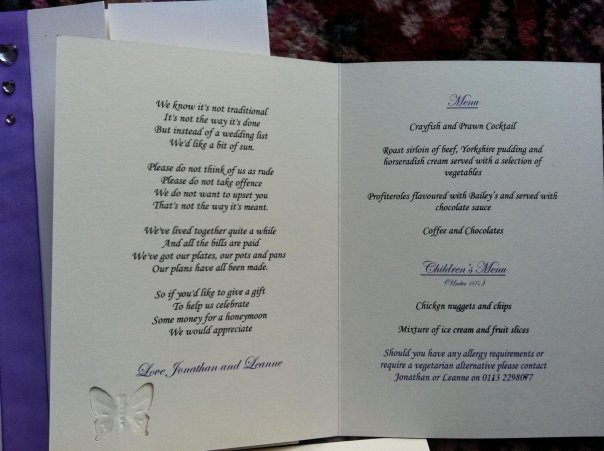 We know it's not traditional
It's not the way it's done
But instead of a wedding list
We'd like a bit of sun.
Please do not think of us as rude
Please do not take offence
We do not want to upset you
That's not the way it's meant.
We've lived together quite a while
And all the bills are paid
We've got our plates, our pots and pans
Our plans have all been made.
So if you'd like to give a gift
To help us celebrate
Some money for a honeymoon
We would appreciate
Love Jonathan and Leanne
Menu
Crayfish and Prawn Cocktail
Roast sirloin of beef, Yorkshire pudding and
horseradish cream served with a selection of
vegetables
Profiteroles flavoured with Bailey's and served with
chocolate sauce
Coffee and Chocolates
Children's Menu
(Under 10's)
Chicken nuggets and chips
Mixture of ice cream and fruit slices
Should you have any allergy requirements or
require a vegetarian alternative please contact
Jonathan or Leanne on 0113 2298077